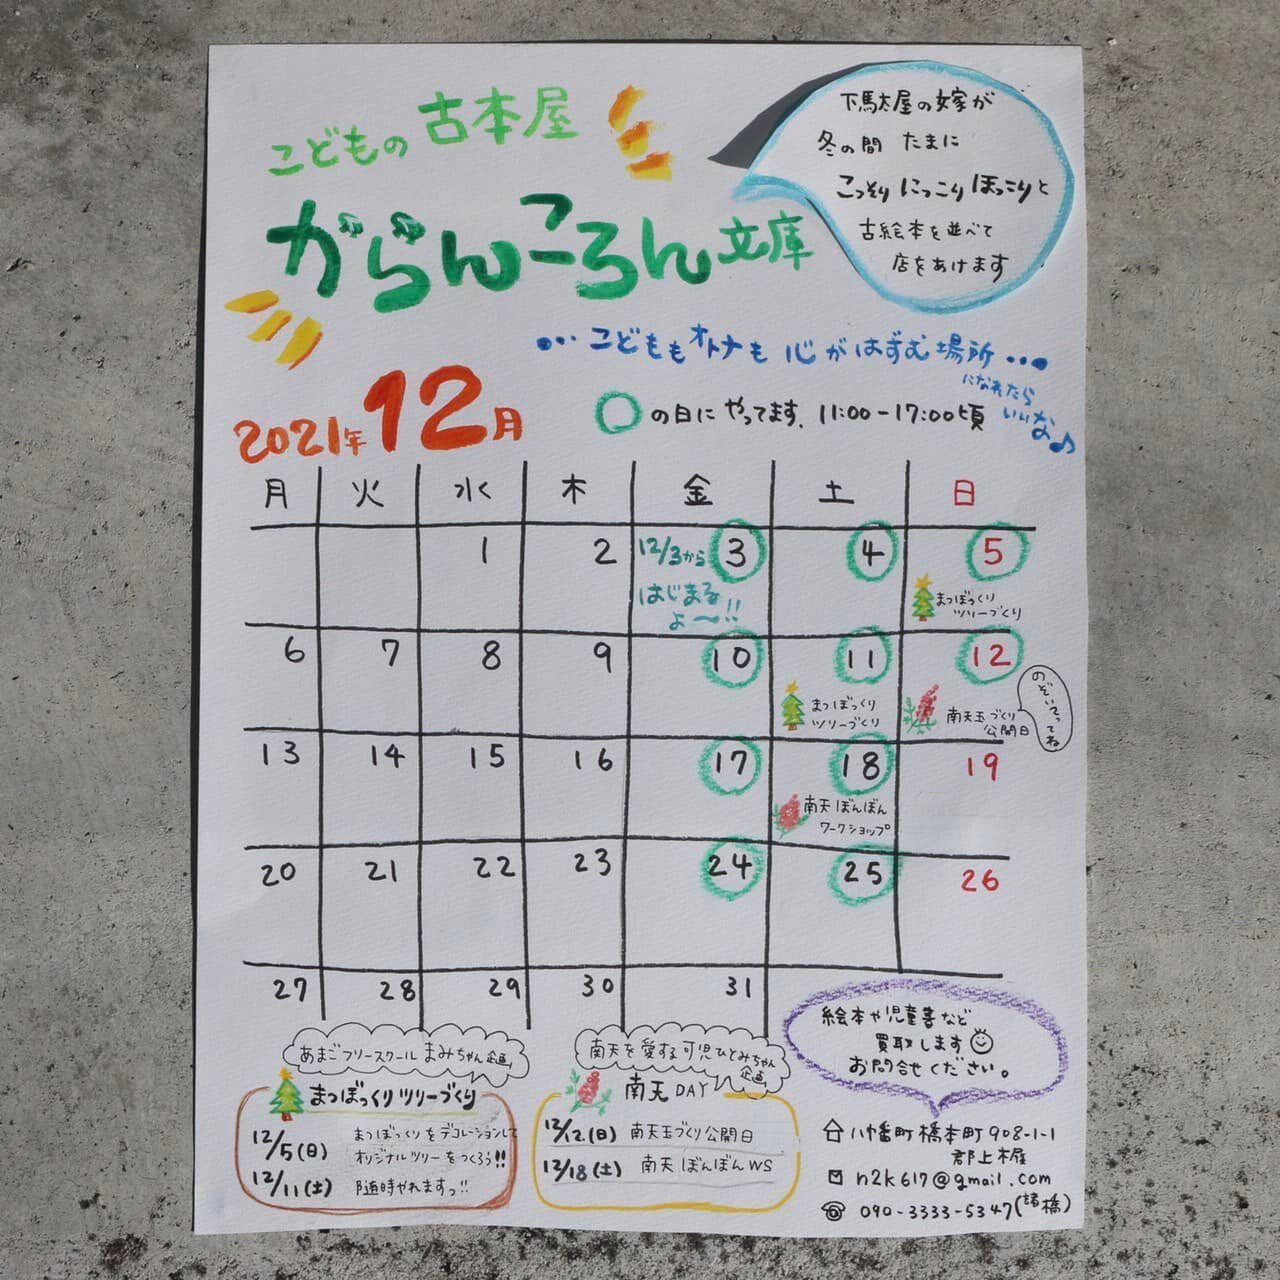 こどもの 古本屋
がらんころん文庫
下駄屋の嫁が
冬の間 たまに
こっそり にっこり ほっこりと
古絵本を並べて
店をあけます
・・・こどももオトナも 心がはずむ場所・・・
になれたら
いいな♪
2021年12月
○の日に やってます、11:00-17:00頃
月 火 水 木 金 土 日
1 2 3 4 5
12/3から
はじまるよ〜!!
まつぼっくり
ツリーづくり
6 7 8 9 10 11 12
まつぼっくり
ツリーづくり
南天玉づくり
公開日
のぞいてってね
13 14 15 16 17 18 19
南天ぼんぼん
ワークショップ
20 21 22 23 24 25 26
27 28 29 30 31
あまごフリースクール まみちゃん企画
まつぼっくりツリーづくり
12/5(日) まつぼっくりをデコレーションして
オリジナルツリーをつくろう!!
12/11(土) 随時やれますっ!!
南天を愛する可児ひとみちゃん
企画
南天DAY
12/12(日) 南天玉づくり公開日
12/18(土) 南天ぼんぼんWS
絵本や児童書など
買取します
お問合せください。
八幡町橋本町908-1-1
郡上木履
n2k617@gmail.com
090-3333-5347(諸橋)